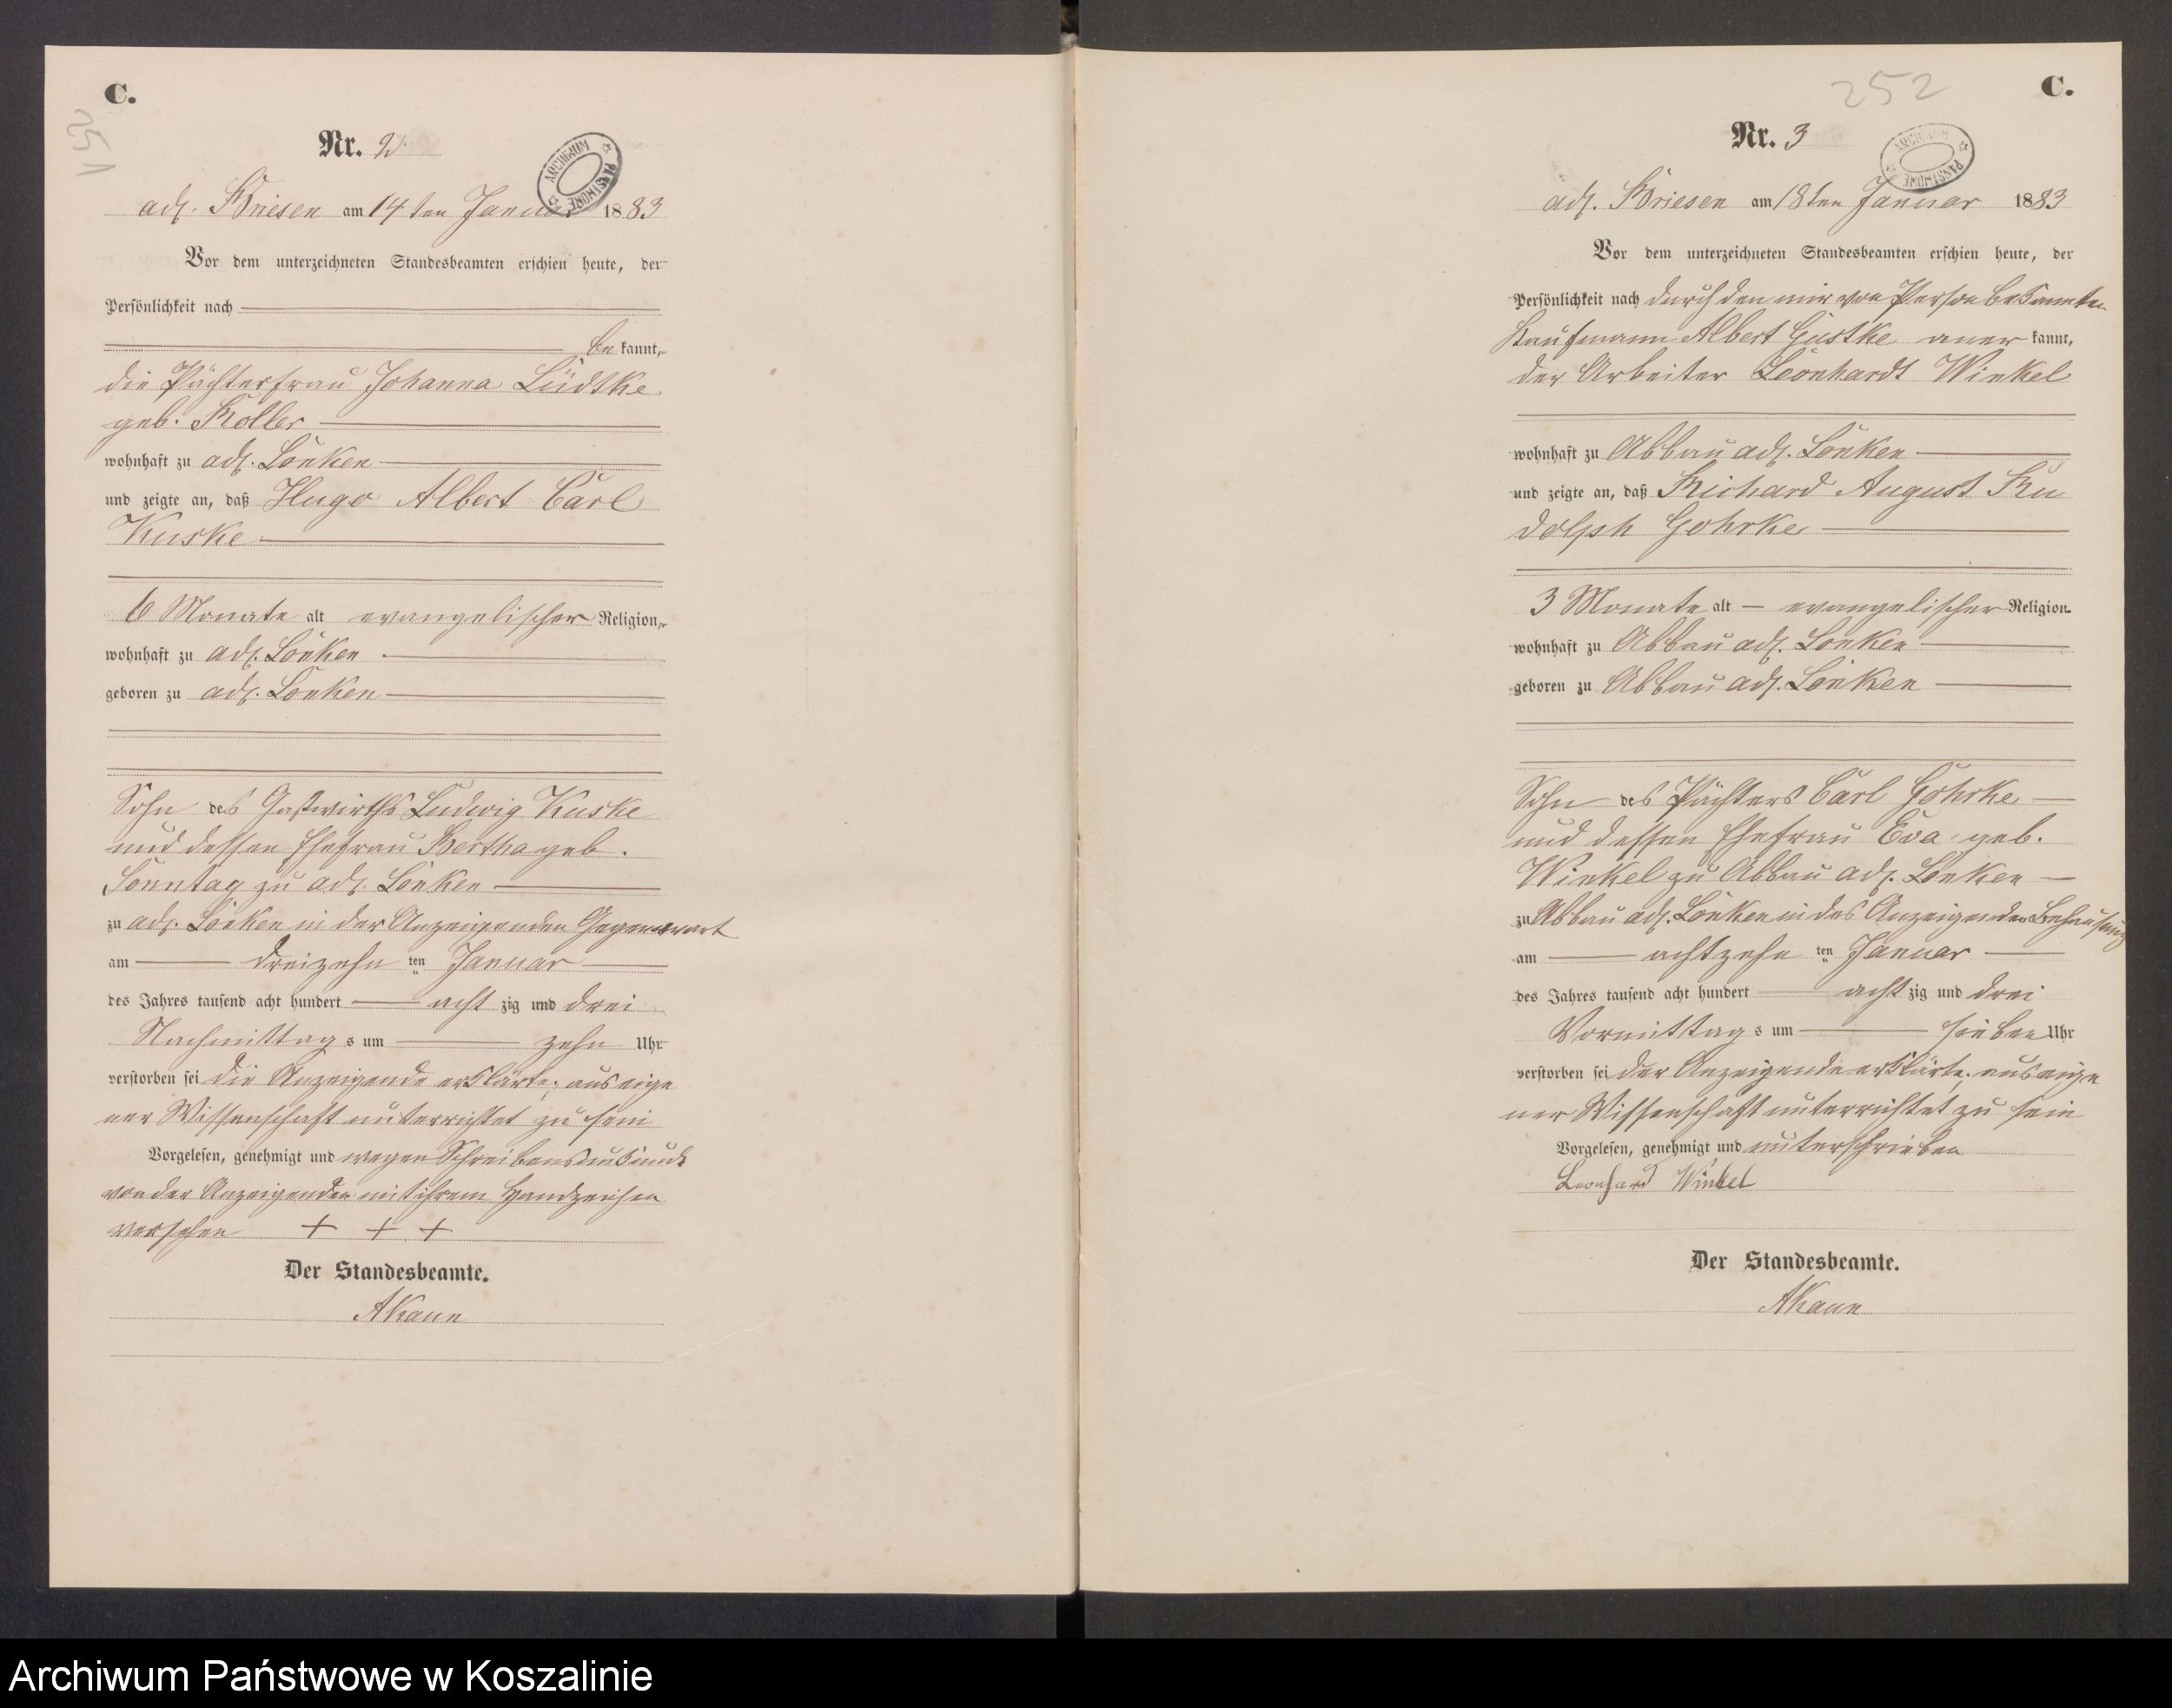 C.
251
Nr. 2.
ARCHIWUM PAŃSTWOWE
adl. Briesen am 14ten Januar 1883
Vor dem unterzeichneten Standesbeamten erschien heute, der
Persönlichkeit nach
be kannt,
die Pächterfrau Johanna Lüdtke
geb. Koller
wohnhaft zu adl. Lonken
und zeigte an, daß Hugo Albert Carl
Kuske
6 Monate alt evangelischer Religion,
wohnhaft zu adl. Lonken
geboren zu adl. Lonken
Sohn des Gastwirths Ludwig Kuske
und dessen Ehefrau Bertha geb.
Sonntag zu adl. Lonken
zu adl. Lonken in der Anzeigenden Gegenwart
am dreizehn ten Januar
des Jahres tausend acht hundert acht zig und drei
Nachmittag s um zehn Uhr
verstorben sei die Anzeigende erklärte, aus eige
ner Wissenschaft unterrichtet zu sein
Vorgelesen, genehmigt und wegen Schreibensunkunde
von der Anzeigenden mit ihrem Handzeichen
versehen + + +
Der Standesbeamte.
252
C.
Nr. 3
ARCHIWUM PAŃSTWOWE
adl. Briesen am 18ten Januar 1883
Vor dem unterzeichneten Standesbeamten erschien heute, der
Persönlichkeit nach durch den mir von Person bekannten
Kaufmann Albert Gustke aner kannt,
der Arbeiter Leonhardt Winkel
wohnhaft zu Abbau adl. Lonken
und zeigte an, daß Richard August Ru
dolph Gohrke
3 Monate alt — evangelischer Religion
wohnhaft zu Abbau adl. Lonken
geboren zu Abbau adl. Lonken
Sohn des Pächters Carl Gohrke
und dessen Ehefrau Eva geb.
Winkel zu Abbau adl. Lonken
zu Abbau adl. Lonken in des Anzeigenden Behausung
am achtzehn ten Januar
des Jahres tausend acht hundert acht zig und drei
Vormittag s um sieben Uhr
verstorben sei der Anzeigende erklärte, aus eige
ner Wissenschaft unterrichtet zu sein
Vorgelesen, genehmigt und unterschrieben
Leonhard Winkel
Der Standesbeamte.
Archiwum Państwowe w Koszalinie